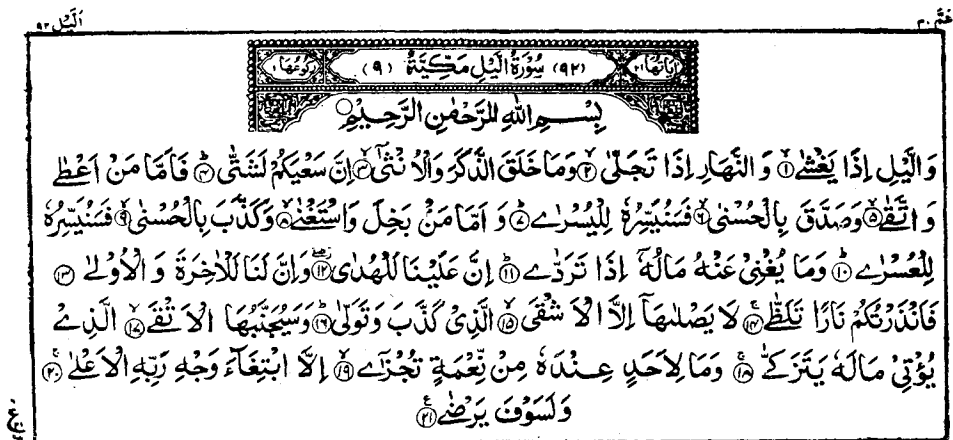 عَمَّ ٣٠
اَلَّيْل ٩٢
اٰيَاتُهَا ٢١
(٩٢) سُوْرَةُ الَّيْلِ مَكِّيَّةٌ (٩)
رُكُوْعُهَا ١
بِسْمِ اللهِ الرَّحْمٰنِ الرَّحِيْمِ
وَ الَّيْلِ اِذَا يَغْشٰى ۱ وَ النَّهَارِ اِذَا تَجَلّٰى ۲ وَمَا خَلَقَ الذَّكَرَ وَالْاُنْثٰٓى ۳ اِنَّ سَعْيَكُمْ لَشَتّٰى ۴ فَاَمَّا مَنْ اَعْطٰى
وَ اتَّقٰى ۵ وَصَدَّقَ بِالْحُسْنٰى ۶ فَسَنُيَسِّرُهٗ لِلْيُسْرٰى ۷ وَ اَمَّا مَنْۢ بَخِلَ وَاسْتَغْنٰى ۸ وَكَذَّبَ بِالْحُسْنٰى ۹ فَسَنُيَسِّرُهٗ
لِلْعُسْرٰى ۱۰ وَمَا يُغْنِيْ عَنْهُ مَالُهٗٓ اِذَا تَرَدّٰى ۱۱ اِنَّ عَلَيْنَا لَلْهُدٰى ۱۲ وَاِنَّ لَنَا لَلْاٰخِرَةَ وَ الْاُوْلٰى ۱۳
فَاَنْذَرْتُكُمْ نَارًا تَلَظّٰى ۱۴ لَا يَصْلٰىهَآ اِلَّا الْاَشْقَى ۱۵ الَّذِيْ كَذَّبَ وَتَوَلّٰى ۱۶ وَسَيُجَنَّبُهَا الْاَتْقَى ۱۷ الَّذِيْ
يُؤْتِيْ مَالَهٗ يَتَزَكّٰى ۱۸ وَمَا لِاَحَدٍ عِنْدَهٗ مِنْ نِّعْمَةٍ تُجْزٰٓى ۱۹ اِلَّا ابْتِغَآءَ وَجْهِ رَبِّهِ الْاَعْلٰى ۲۰
وَلَسَوْفَ يَرْضٰى ۲۱